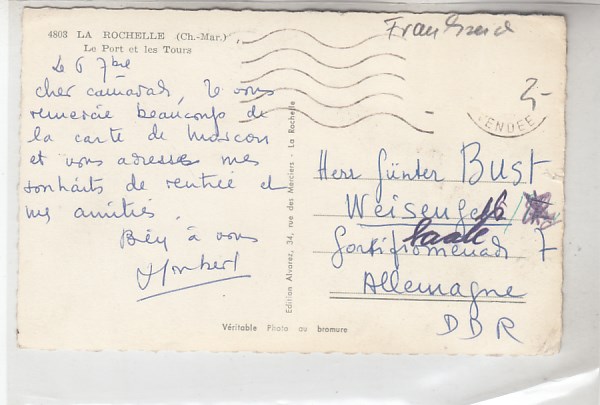 4803 LA ROCHELLE (Ch.-Mar.)
Le Port et les Tours
Le 6 7bre
cher camarade, Je vous
remercie beaucoup de
la carte de Moscou
et vous adresse mes
souhaits de rentrée et
mes amitiés.
Bien à vous
Edition Alvarez, 34, rue des Merciers - La Rochelle
Véritable Photo au bromure
VENDEE
2-
Herr Günter Bust
Weisenfels
Saale
7
Allemagne
DDR